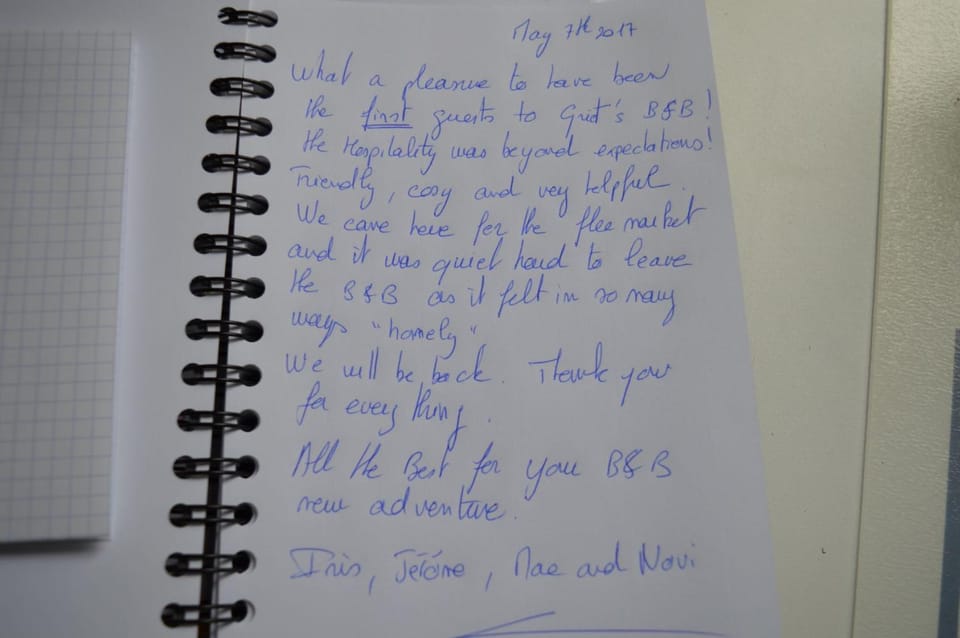 May 7th 2017
What a pleasure to have been
the first guests to Griet's B&B!
the Hospitality was beyond expectations!
Friendly, cosy and very helpful.
We came here for the flee market
and it was quiet hard to leave
the B&B as it felt in so many
ways "homely"
We will be back. Thank you
for everything.
All the Best for you B&B
new adventure.
Iris, Jérôme, Mae and Novi